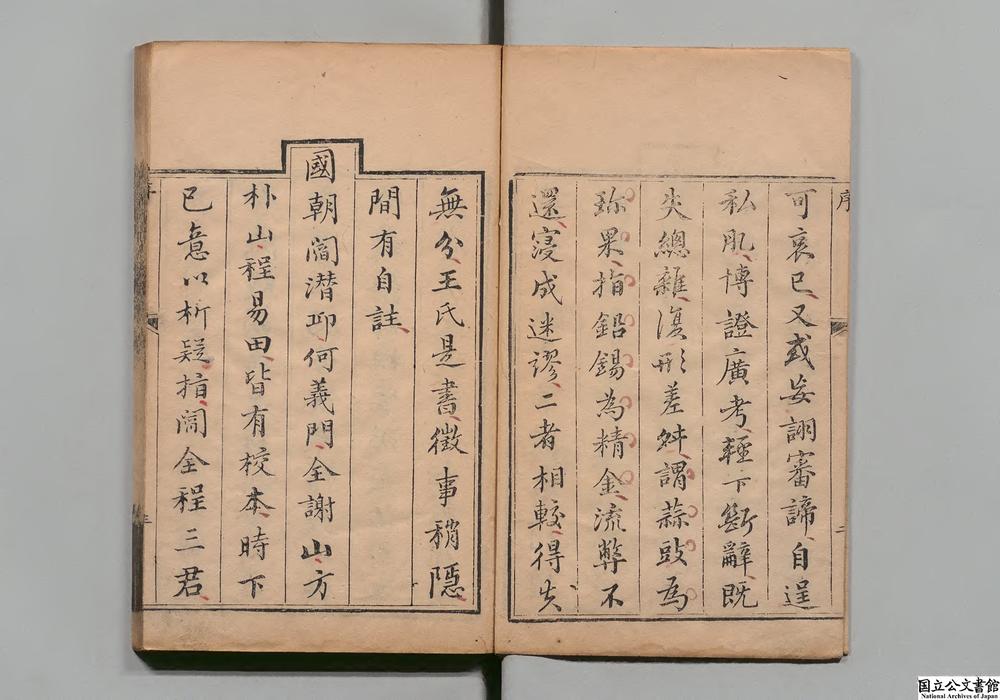 序
可哀已又或妄詡審諦自逞
私肊博證廣考輕下斷辭既
失總雜復形差舛謂蒜豉為
珎果指鉛錫為精金流弊不
還寖成迷謬二者相較得失
二
無分王氏是書徵事稍隱
間有自註
國朝閻潛邱何義門全謝山方
朴山程易田皆有校本時下
已意以析疑指閻全程三君
国立公文書館
National Archives of Japan